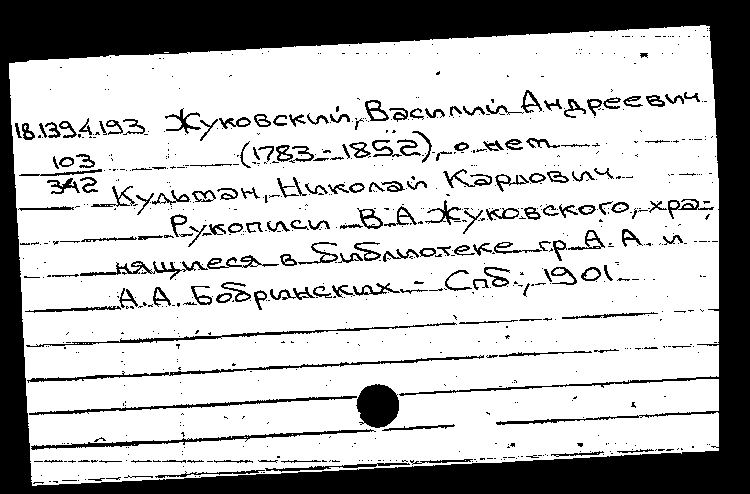 18.139.4.193 Жуковский, Василий Андреевич
103 (1783-1852), о нем.
342 Кульман, Николай Карлович.
Рукописи В.А. Жуковского, хра-
нящиеся в библиотеке гр. А. А. и
А.А. Бобринских. - Спб., 1901.